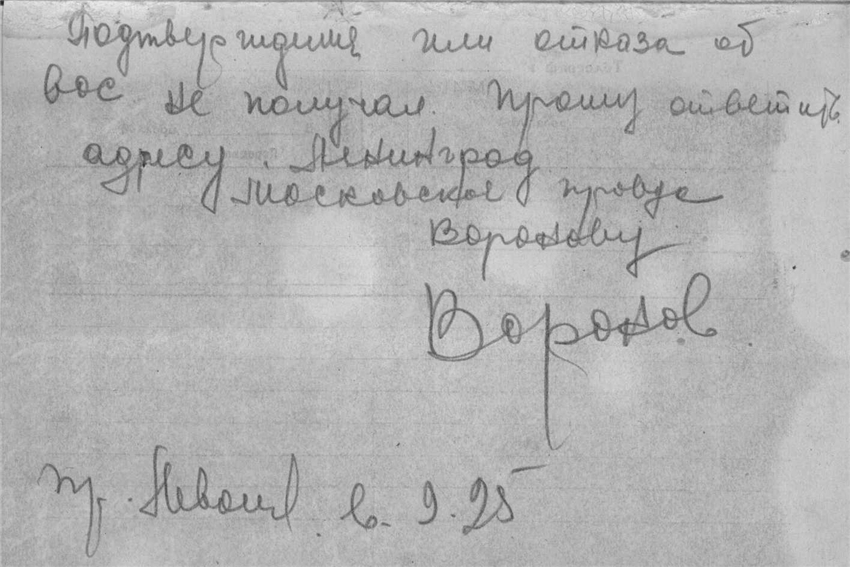 Подтверждения или отказа об
вас не получал. Прошу ответить
адресу: Ленинград
Московское правда
Воронову
Воронов
пр. в. 9.25